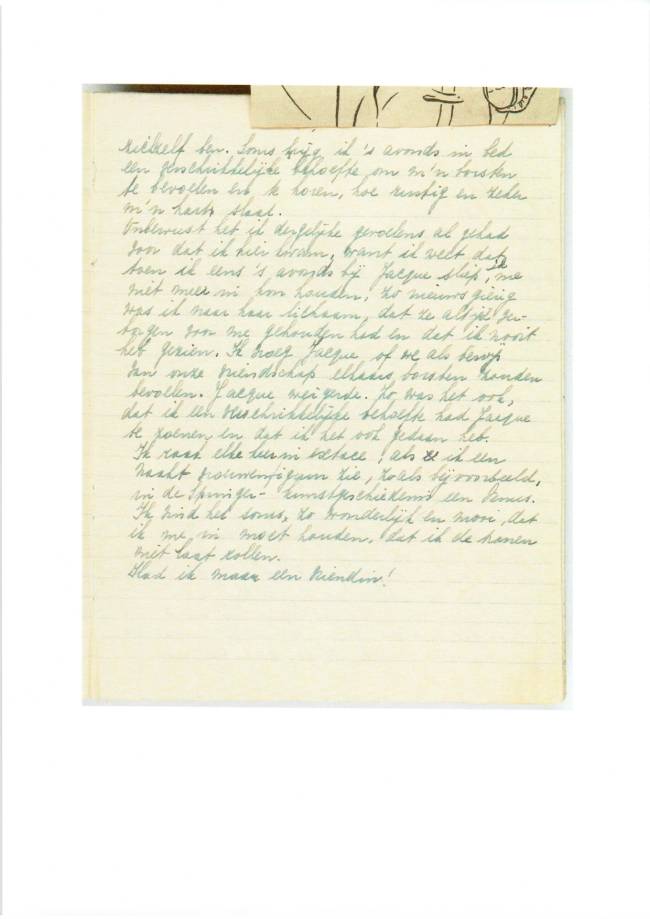 mezelf ben. Soms krijg ik 's avonds in bed
een verschrikkelijke behoefte om m'n borsten
te bevoelen en te horen, hoe rustig en zeker
m'n hart slaat.
Onbewust heb ik dergelijke gevoelens al gehad
voor dat ik hier kwam, want ik weet dat
toen ik eens 's avonds bij Jacque sliep, ik me
niet meer in kon houden, zo nieuwsgierig
was ik naar haar lichaam, dat ze altijd ver-
borgen voor me gehouden had en dat ik nooit
heb gezien. Ik vroeg Jacque, of we als bewijs
van onze vriendschap elkaars borsten zouden
bevoelen. Jacque weigerde. Zo was het ook,
dat ik een verschrikkelijke behoefte had Jacque
te zoenen en dat ik het ook gedaan heb.
Ik raak elke keer in extase, als ik een
naakt vrouwenfiguur zie, zoals bijvoorbeeld,
in de Springer- kunstgeschiedenis een Venus.
Ik vind het soms, zo wonderlijk en mooi, dat
ik me in moet houden, dat ik de tranen
niet laat rollen.
Had ik maar een vriendin!